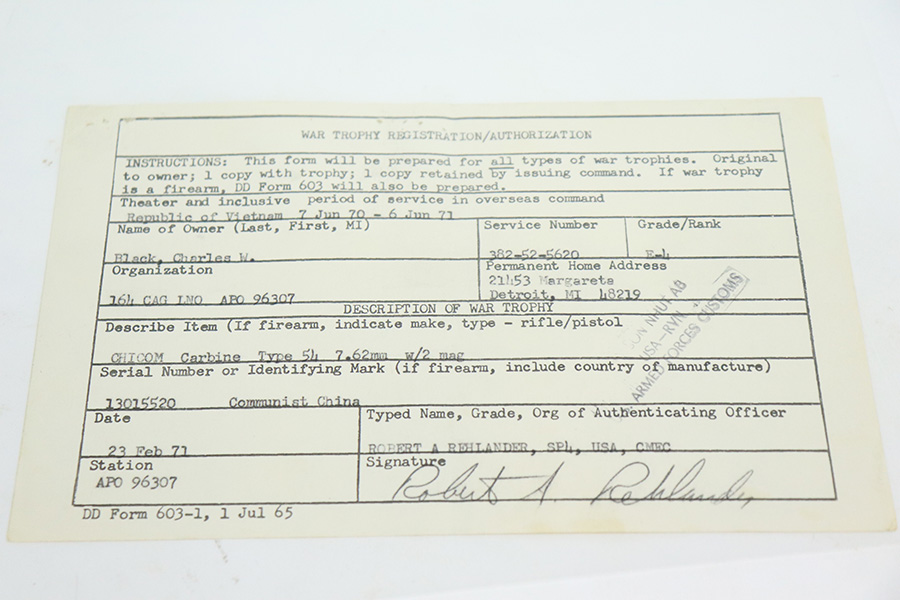 WAR TROPHY REGISTRATION/AUTHORIZATION
INSTRUCTIONS: This form will be prepared for all types of war trophies. Original
to owner; 1 copy with trophy; 1 copy retained by issuing command. If war trophy
is a firearm, DD Form 603 will also be prepared.
Theater and inclusive period of service in overseas command
Republic of Vietnam 7 Jun 70 - 6 Jun 71
Name of Owner (Last, First, MI)
Black, Charles W.
Service Number
382-52-5620
Grade/Rank
E-4
Organization
164 CAG LNO APO 96307
Permanent Home Address
21453 Margareta
Detroit, MI 48219
DESCRIPTION OF WAR TROPHY
Describe Item (If firearm, indicate make, type - rifle/pistol
CHICOM Carbine Type 54 7.62mm w/2 mag
SON NHUT AB
USA-RVN
ARMED FORCES CUSTOMS
Serial Number or Identifying Mark (if firearm, include country of manufacture)
13015520 Communist China
Date
23 Feb 71
Typed Name, Grade, Org of Authenticating Officer
ROBERT A REHLANDER, SP4, USA, CMEC
Station
APO 96307
Signature
Robert A. Rehlander
DD Form 603-1, 1 Jul 65